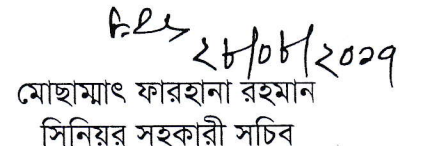 ২৮/০৮/২০১৭
মোছাম্মাৎ ফারহানা রহমান
সিনিয়র সহকারী সচিব